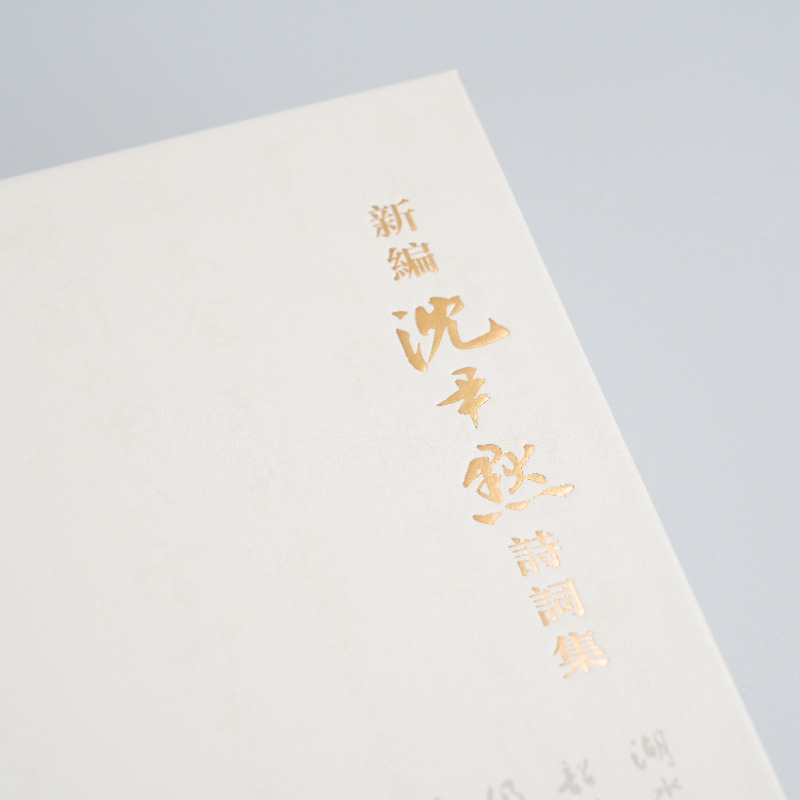 新編沈尹默詩詞集
湖水